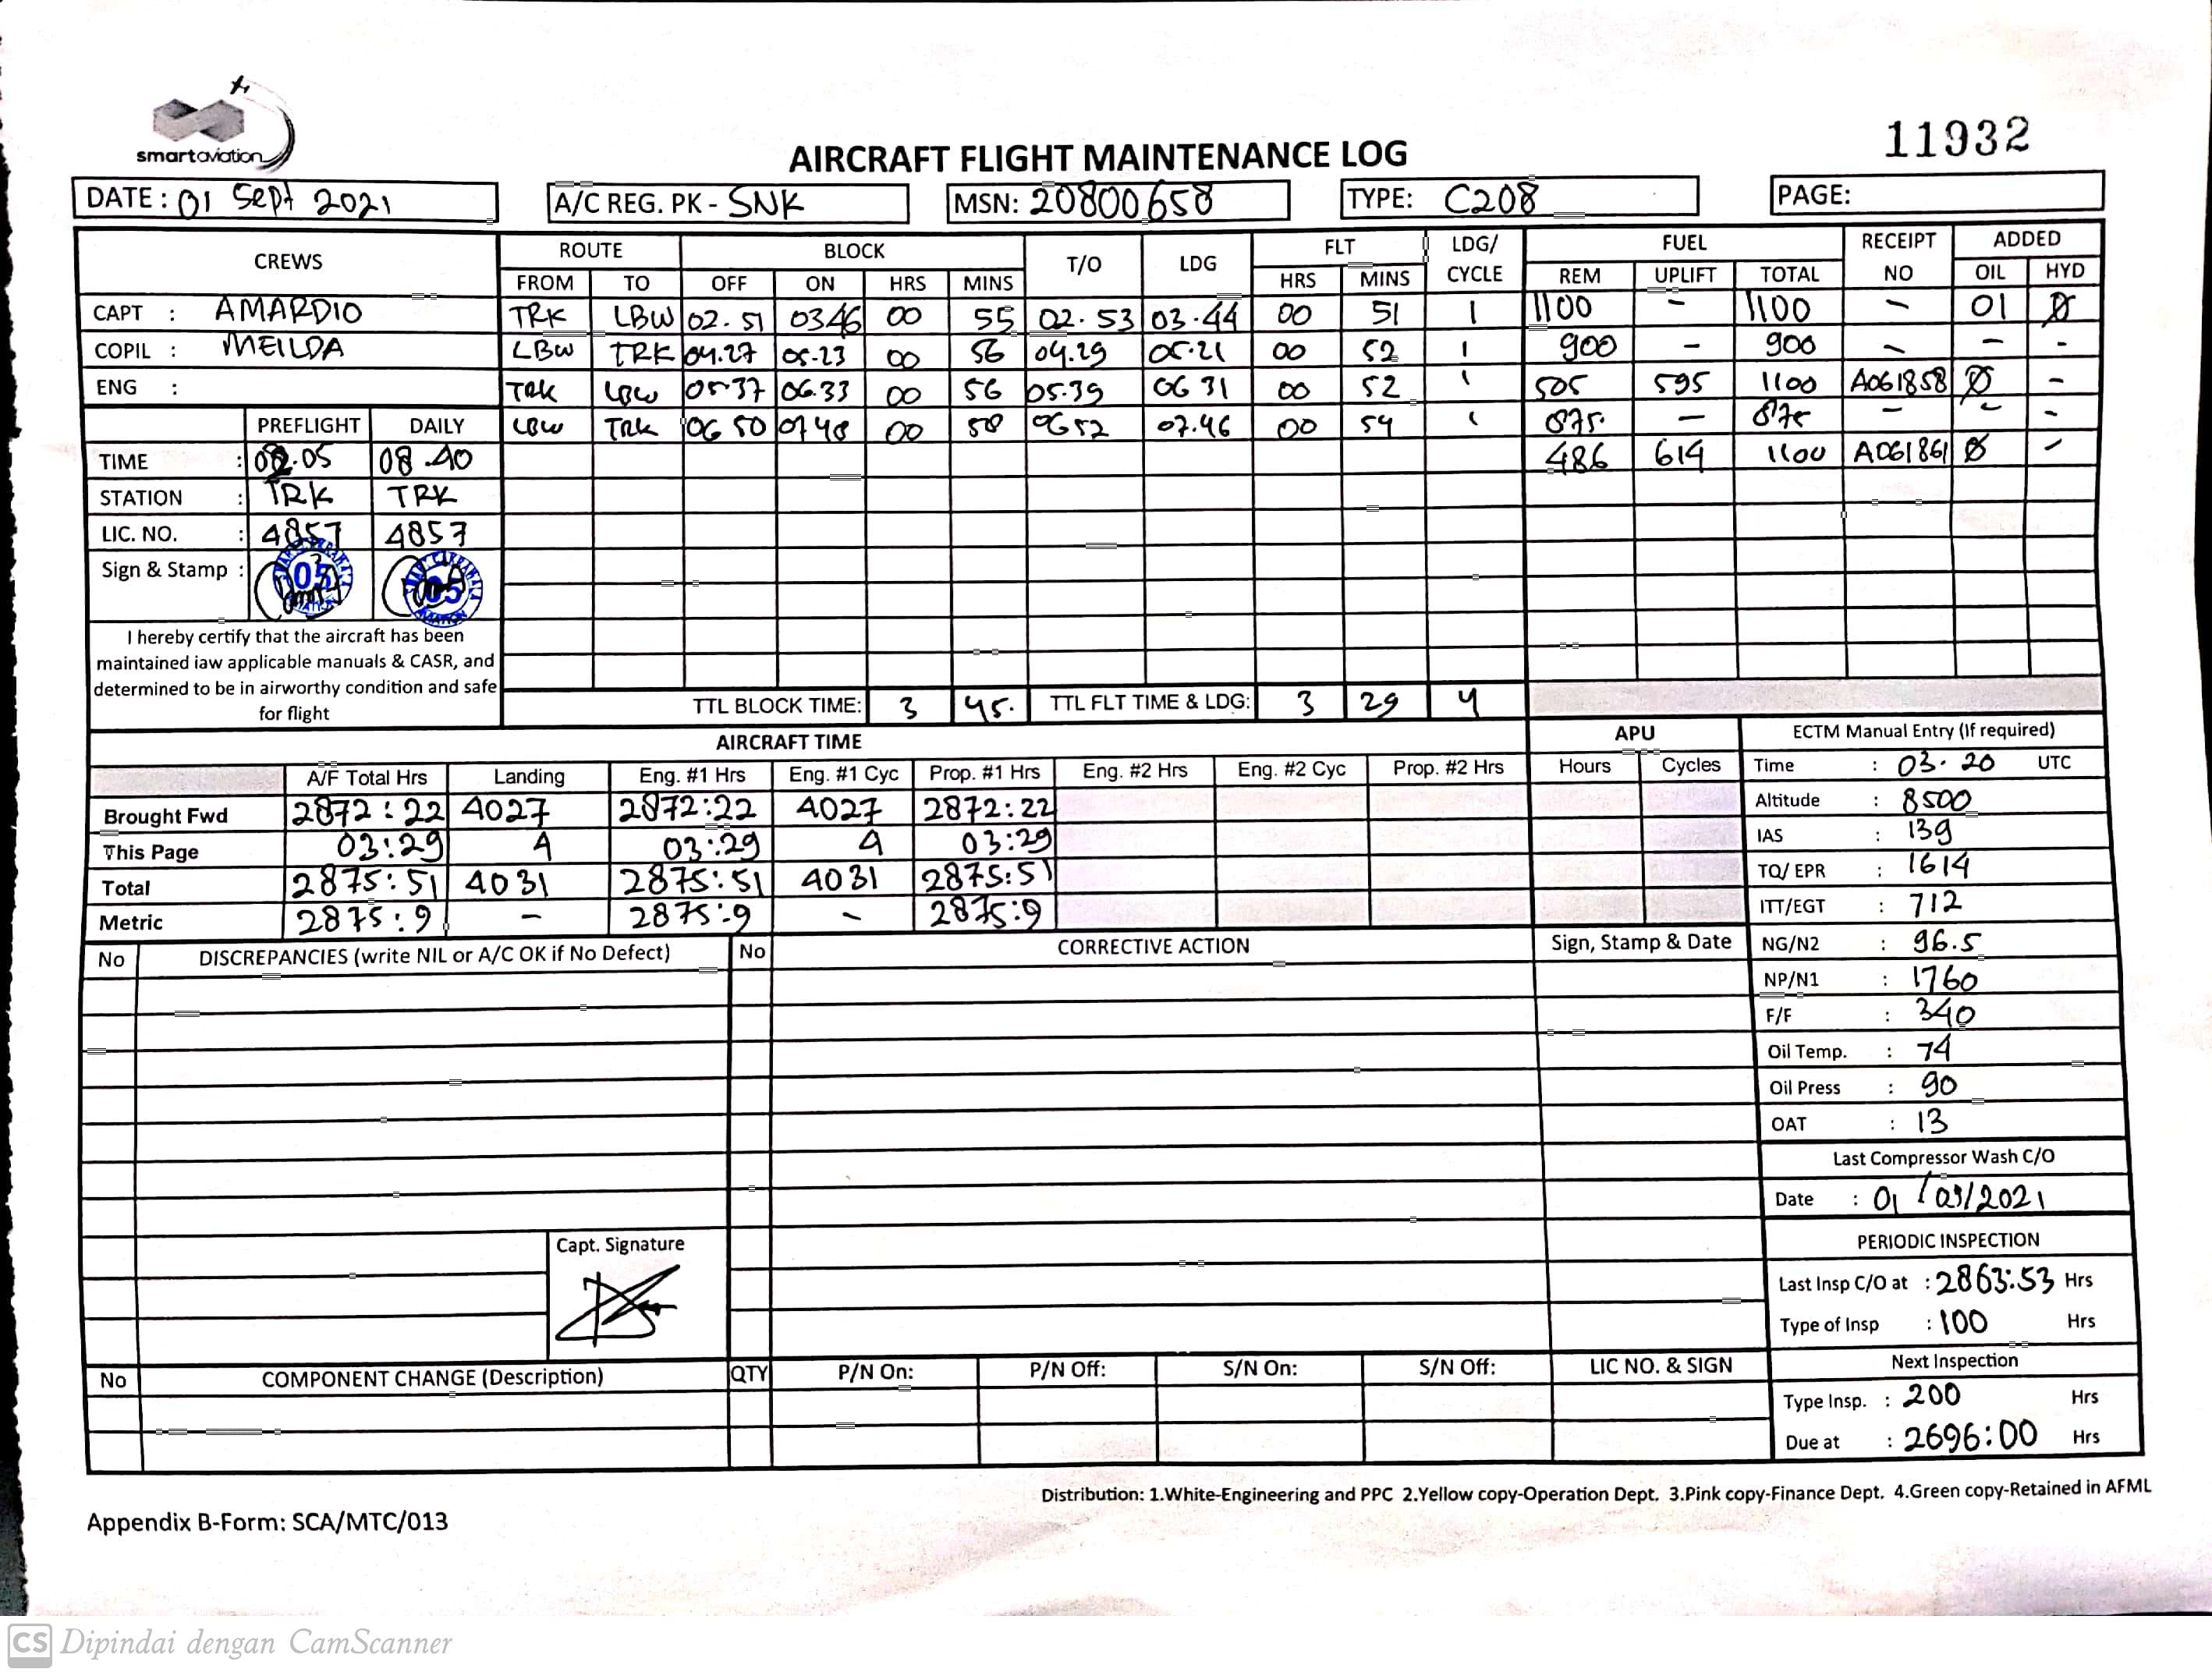 smartaviation
AIRCRAFT FLIGHT MAINTENANCE LOG
11932
DATE: 01 Sept 2021 A/C REG. PK - SNK MSN: 20800658 TYPE: C208 PAGE:
CREWS ROUTE BLOCK T/O LDG FLT LDG/ CYCLE FUEL RECEIPT NO ADDED
FROM TO OFF ON HRS MINS HRS MINS REM UPLIFT TOTAL OIL HYD
CAPT : AMARDIO TRK LBW 02.51 0346 00 55 02.53 03.44 00 51 1 1100 - 1100 - 01 Ø
COPIL : MEILDA LBW TRK 04.27 05-23 00 56 04.29 05.21 00 52 1 900 - 900 - - -
ENG : TRK LBW 05-37 06.33 00 56 05.39 06 31 00 52 1 505 595 1100 A061858 Ø -
PREFLIGHT DAILY LBW TRK 06 50 0748 00 58 0652 07.46 00 54 1 875. - 875 - - -
TIME : 02.05 08.40 486 614 1100 A061861 Ø -
STATION : TRK TRK
LIC. NO. : 4857 4857
Sign & Stamp : 05 05
I hereby certify that the aircraft has been
maintained iaw applicable manuals & CASR, and
determined to be in airworthy condition and safe
for flight
TTL BLOCK TIME: 3 45. TTL FLT TIME & LDG: 3 29 4
AIRCRAFT TIME APU ECTM Manual Entry (If required)
A/F Total Hrs Landing Eng. #1 Hrs Eng. #1 Cyc Prop. #1 Hrs Eng. #2 Hrs Eng. #2 Cyc Prop. #2 Hrs Hours Cycles Time : 03.20 UTC
Brought Fwd 2872:22 4027 2872:22 4027 2872:22 Altitude : 8500
This Page 03:29 4 03:29 4 03:29 IAS : 139
Total 2875:51 4031 2875:51 4031 2875:51 TQ/ EPR : 1614
Metric 2875:9 - 2875:9 - 2875:9 ITT/EGT : 712
No DISCREPANCIES (write NIL or A/C OK if No Defect) No CORRECTIVE ACTION Sign, Stamp & Date NG/N2 : 96.5
NP/N1 : 1760
F/F : 340
Oil Temp. : 74
Oil Press : 90
OAT : 13
Last Compressor Wash C/O
Date : 01/09/2021
Capt. Signature
PERIODIC INSPECTION
Last Insp C/O at : 2863:53 Hrs
Type of Insp : 100 Hrs
Next Inspection
No COMPONENT CHANGE (Description) QTY P/N On: P/N Off: S/N On: S/N Off: LIC NO. & SIGN
Type Insp. : 200 Hrs
Due at : 2696:00 Hrs
Distribution: 1.White-Engineering and PPC 2.Yellow copy-Operation Dept. 3.Pink copy-Finance Dept. 4.Green copy-Retained in AFML
Appendix B-Form: SCA/MTC/013
CS Dipindai dengan CamScanner